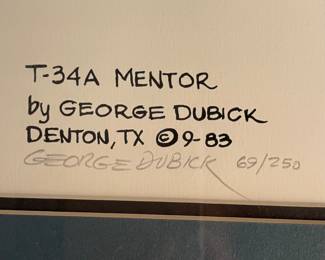 T-34A MENTOR
by GEORGE DUBICK
DENTON, TX © 9-83
GEORGE DUBICK 69/250